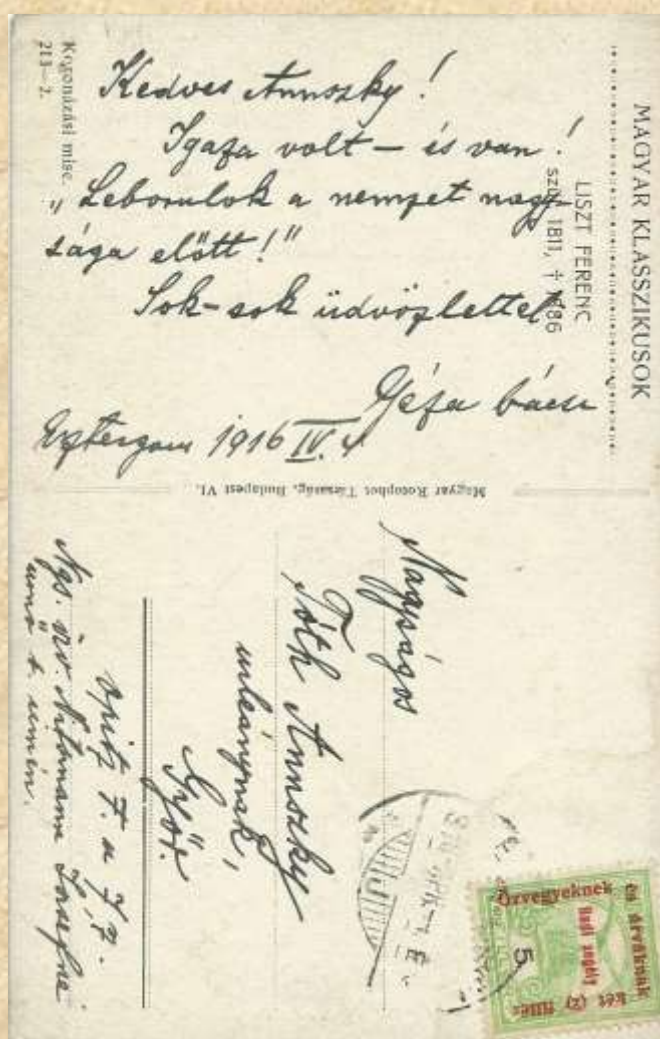 MAGYAR KLASSZIKUSOK
LISZT FERENC
szül. 1811, † 1886
Koronázási mise.
213—2.
Kedves Annszky!
Igaza volt — és van!
„Leborulok a nemzet nagy-
sága előtt!"
Sok-sok üdvözlettel
Géza bácsi
Esztergom 1916 IV. 4
Magyar Rotophot Társaság, Budapest VI.
Nagyságos
Tóth Annszky
urleánynak,
Győr.
Ngs. özv.
Özvegyeknek és árváknak
két (2) fillér
Hadi segély
5